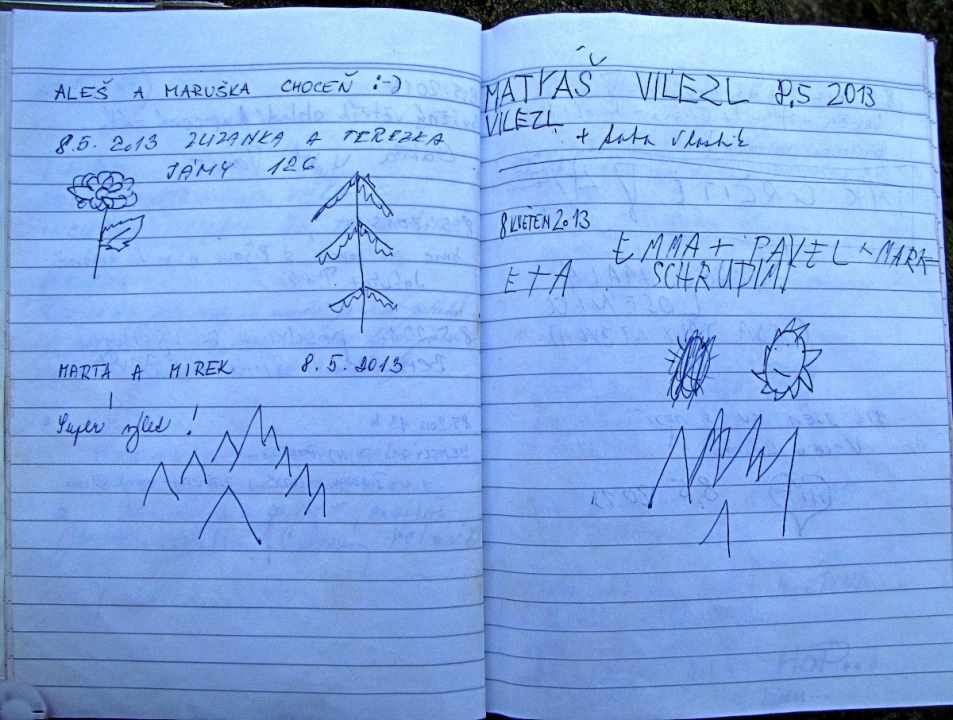 ALEŠ A MARUŠKA CHOCEŇ :-)
8.5. 2013 ZUZANKA A TEREZKA
JÁMY 126
MARTA A MIREK 8.5.2013
Super !
MATYÁŠ VILEZL 8.5 2013
VILEZL
+ táta Vlastík
8 KVĚTEN 2013
EMMA + PAVEL
E+A SCHRUDIM